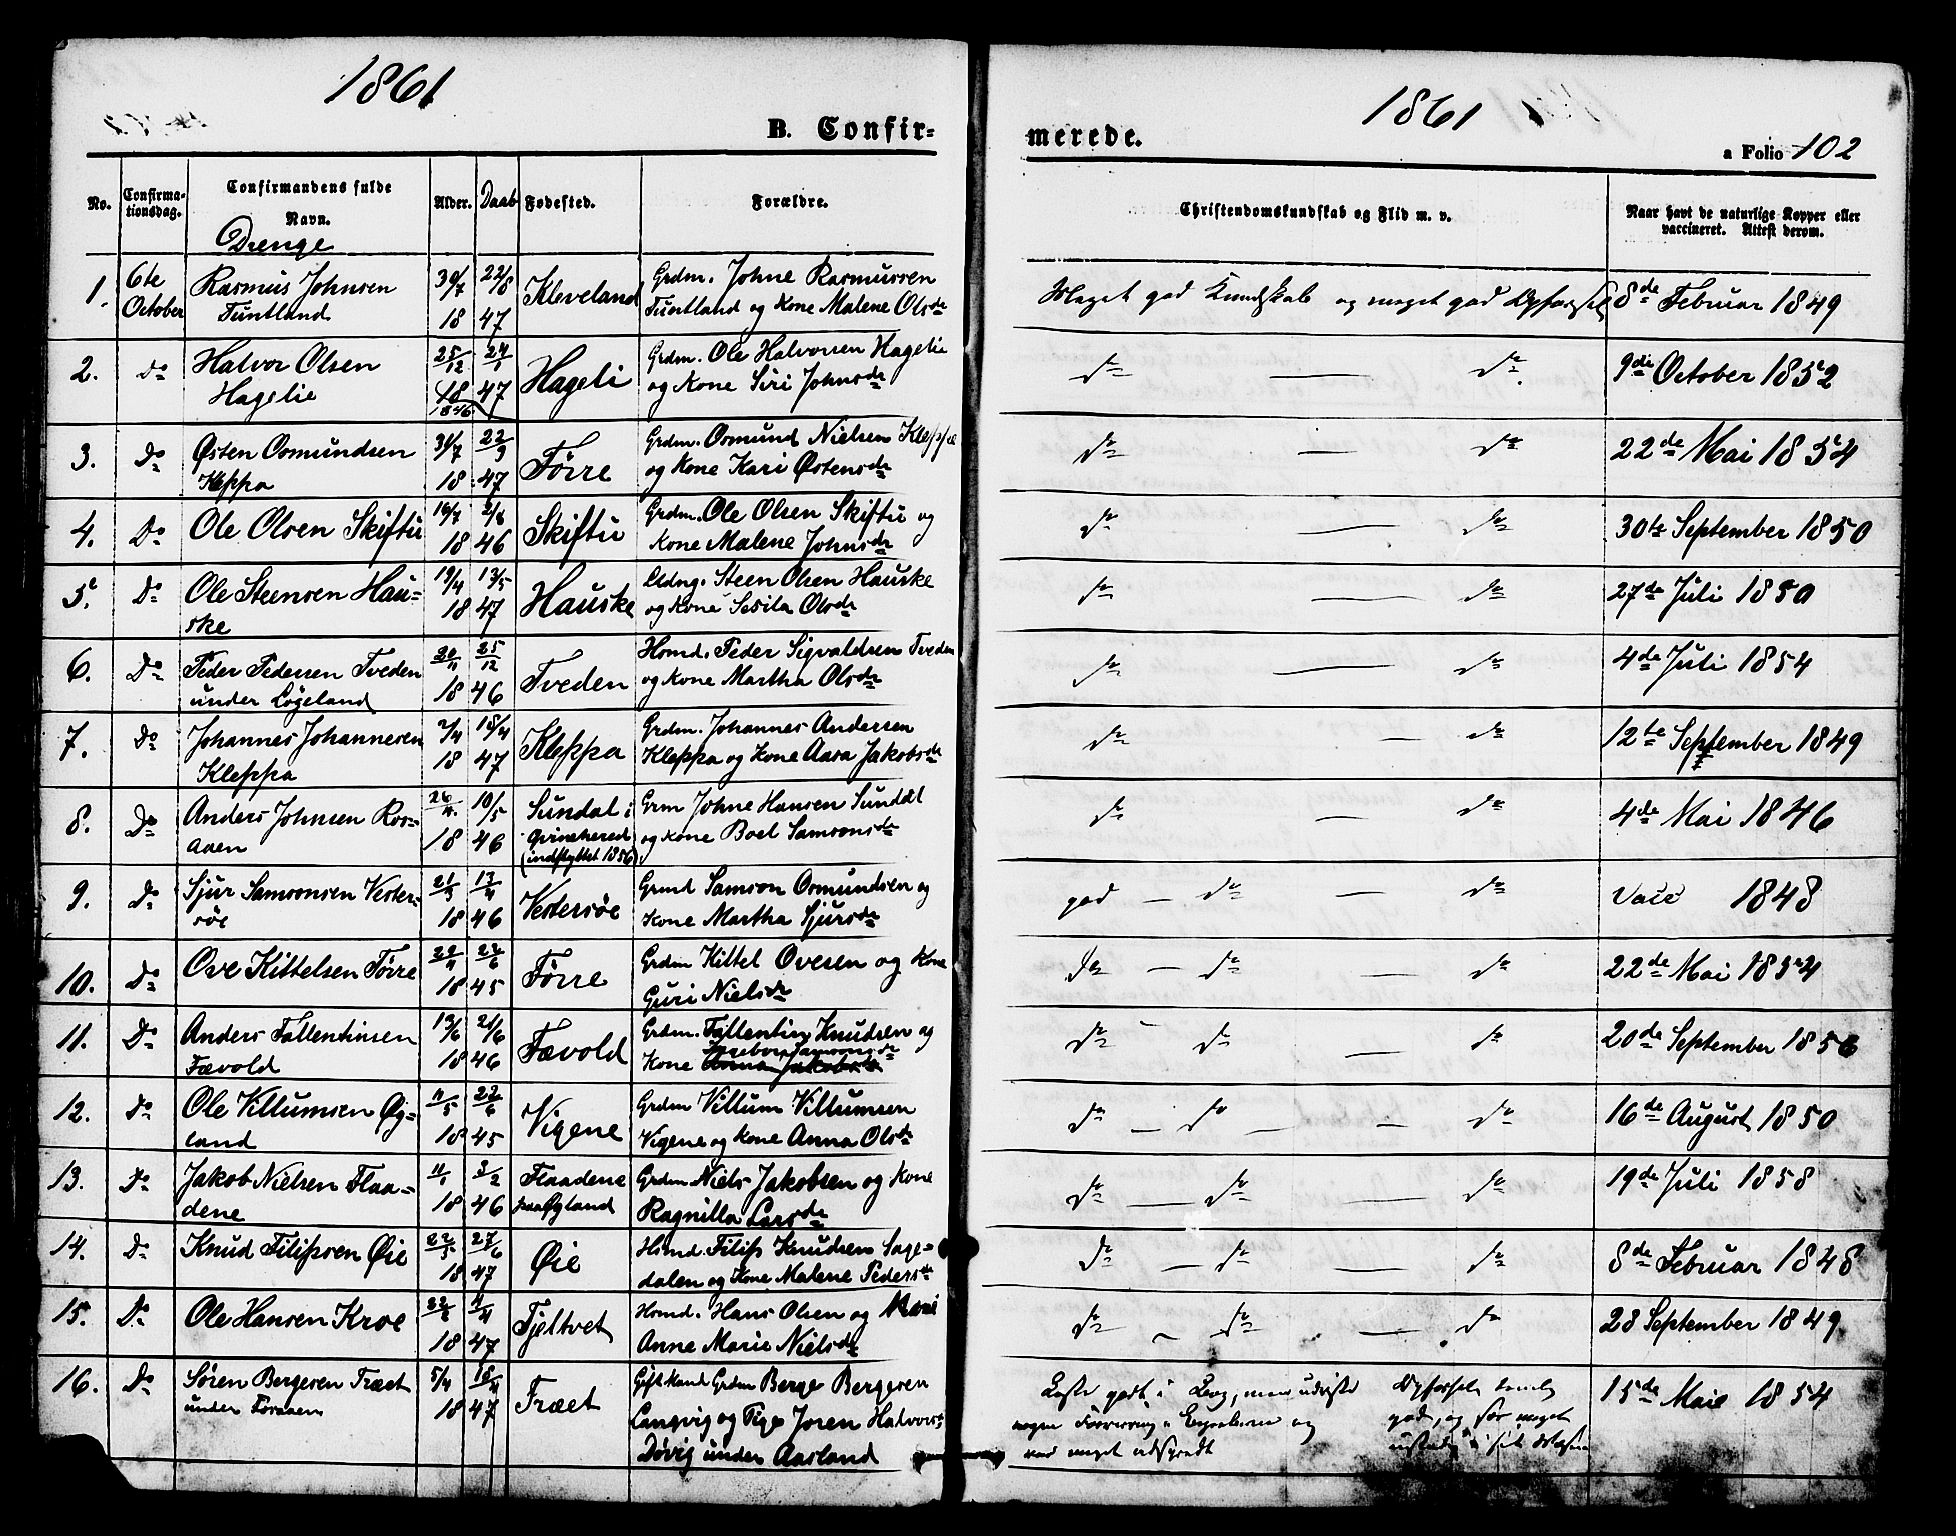 1861
B. Confir-
No. Confirma-tionsdag. Confirmandens fulde Navn. Alder. Daab Fødested. Forældre.
Drenge
1. 6te October Rasmus Johnsen Tuntland 30/7 18 22/8 47 Kleveland Grdm. Johne Rasmussen
Tuntland og Kone Malene Olsdr
2. Do Halvor Olsen Hagelie 25/12 18 1846 24/1 47 Hageli Grdm. Ole Halvorsen Hagelie
og Kone Siri Johnsdr
3. Do Østen Osmundsen Kleppa 31/7 18 22/9 47 Tørre Grdm. Osmund Nielsen Kleppe
og Kone Kari Østensdr
4. Do Ole Olsen Skiftu 16/7 18 2/8 46 Skiftu Grdm. Ole Olsen Skiftu og
Kone Malene Johnsdr
5. Do Ole Steensen Hau-
ske 19/4 18 13/5 47 Hauske Steen Olsen Hauske
og Kone Sesila Olsdr
6. Do Peder Pedersen Tveden
under Løgeland 20/11 18 25/12 46 Tveden Hsmd. Peder Sigvaldsen Tveden
og Kone Martha Olsdr
7. Do Johannes Johannesen
Kleppa 2/4 18 18/4 47 Kleppa Grdm. Johannes Andersen
Kleppa og Kone Aasa Jakobsdr
8. Do Anders Johnsen Ros-
aaen 26/4 18 10/5 46 Sundal i
Qvineherred
(indflyttet 1856) Grm Johne Hansen Sundal
og Kone Boel Samsonsdr
9. Do Sjur Samsonsen Vester-
søe 21/3 18 13/4 46 Vestersøe Grmd Samson Osmundsen og
Kone Martha Sjursdr
10. Do Ove Kittelsen Tørre 22/4 18 22/6 45 Tørre Grdm Kittel Ovesen og Kone
Guri Nielsdr
11. Do Anders Fallentinsen
Fævold 13/6 18 21/6 46 Fævold Grdm. Fallentin Knudsen og
Kone Ingebor Samsonsdr
12. Do Ole Villumsen Øg-
land 11/5 18 22/6 45 Vigene Grdm Villum Villumsen
Vigene og Kone Anna Olsdr
13. Do Jakob Nielsen Flaa-
dene 11/1 18 3/2 46 Flaadene
paa Øgland Grdm Niels Jakobsen og Kone
Ragnilla Larsdr
14. Do Knud Filipsen Øie 22/5 18 27/6 47 Øie Hsmd. Filip Knudsen Sage-
dalen og Kone Malene Pedersdr
15. Do Ole Hansen Kroe 22/2 18 4/4 47 Fjeltvet Hsmd. Hans Olsen og Kone
Anne Marie Nielsdr
16. Do Søren Bergesen Træet
under Foraaen 5/4 18 18/4 47 Træet Gift Mand Grdm Berge Bergesen
Langvig og Pige Joren Halvorsdr
Døvig under Aarland
1861
merede.
a Folio 102
Christendomskundskab og Flid m. v. Naar havt de naturlige Kopper eller
vaccineret. Attest derom.
Meget god Kundskab og meget god Opførsel 8de Februar 1849
do — do. 9de October 1852
do — do 22de Mai 1854
do — do 30te September 1850
do — do 27de Juli 1850
do — do 4de Juli 1854
do — do 12te September 1849
do — do 4de Mai 1846
god — do — do Vacc 1848
do — do do 22de Mai 1854
do - do — do 20de September 1856
do — do — do 16de August 1850
do — do — do 19de Juli 1858
do — do do 8de Februar 1848
do ~ do — do 28 September 1849
Læste godt i Bog, men udviste Opførsel temlig 15de Maie 1854
nogen Forvirring i og god, og før meget
var meget adspredt ustadig i sit Væsen